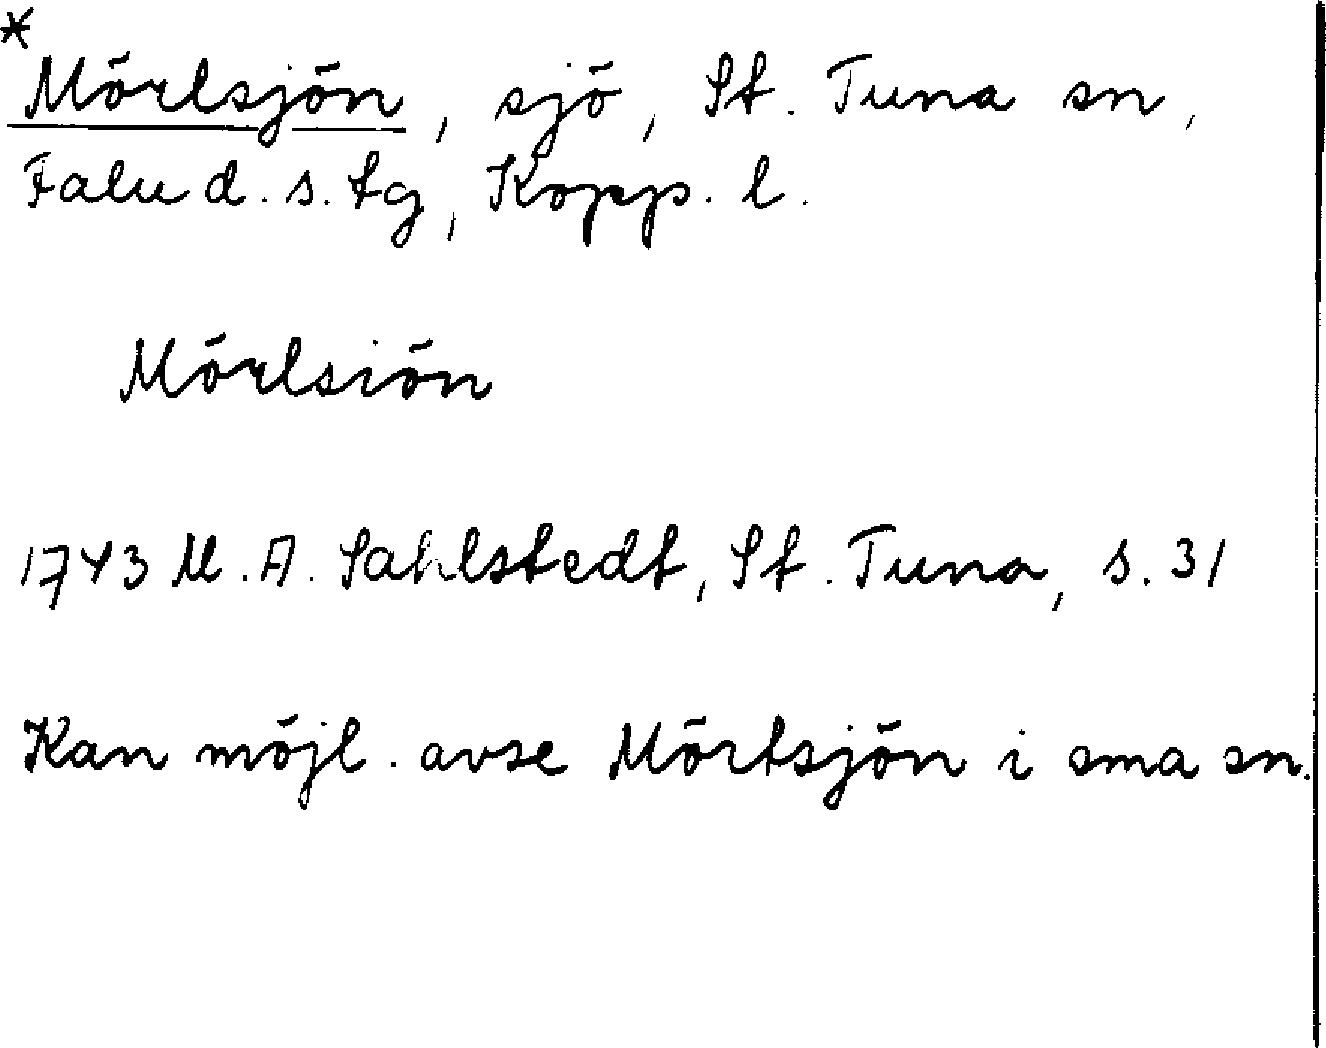 *
Mörlsjön, sjö, St. Tuna sn,
Falu d. s. tg, Kopp. l.
Mörlsiön
1743 M. A. Sahlstedt, St. Tuna, s. 31
Kan möjl. avse Mörtsjön i sma sn.